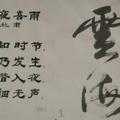 夜喜雨
杜甫
知时节
乃发生
潜入夜
细无声
雲海